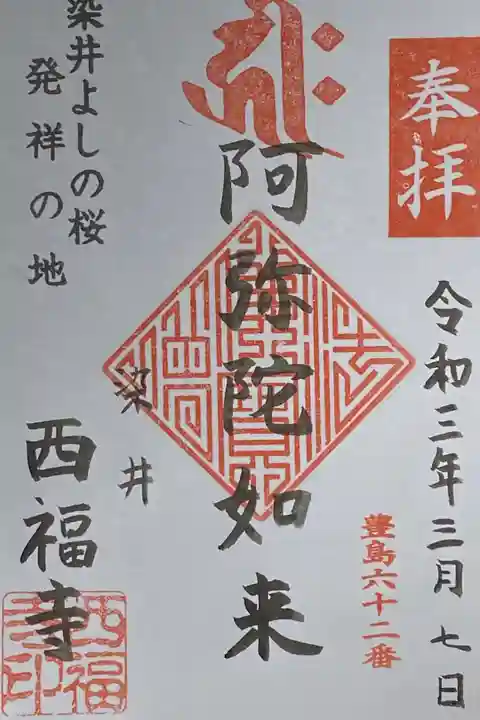 奉拝
令和三年三月七日
豊島六十二番
阿弥陀如来
染井
西福寺
染井よしの桜
発祥の地
西福寺印